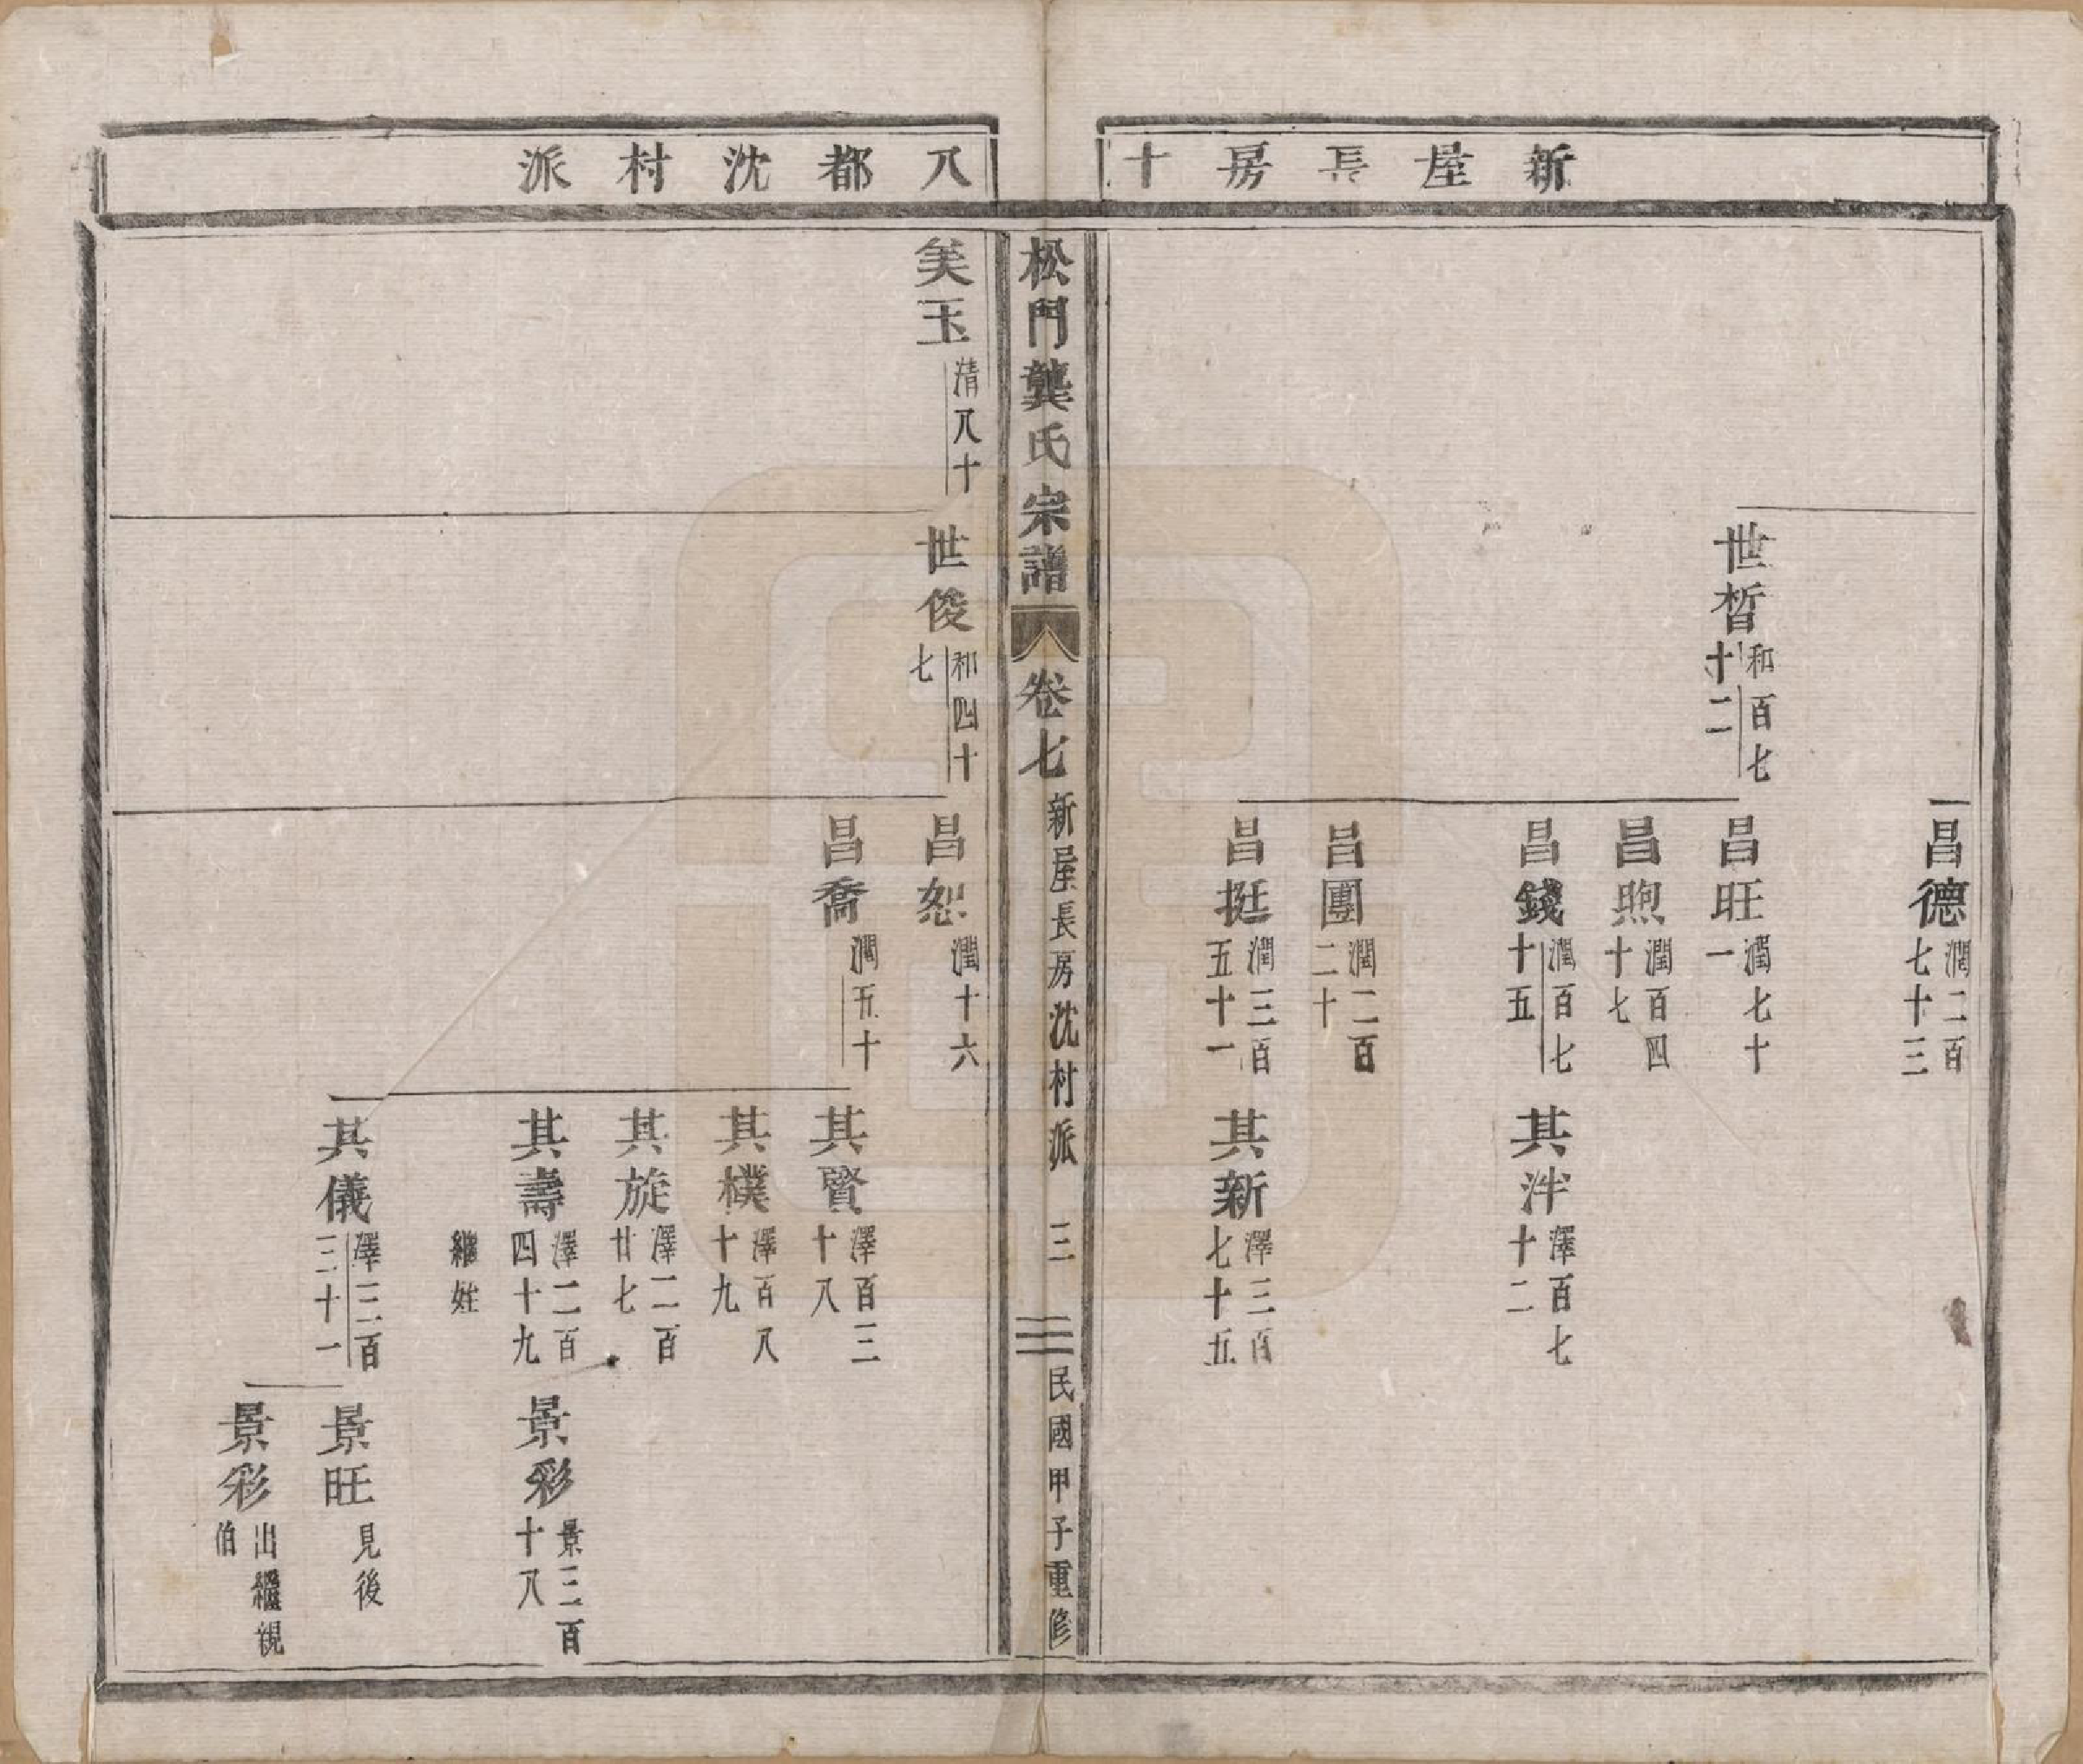 新屋長房十
八都沈村派
昌德 潤二百七十三
世晳 和百七十二
昌旺 潤七十一
昌煦 潤百四十七
昌錢 潤百七十五
其泮 澤百七十二
昌團 潤二百二十
昌挺 潤三百五十一
其新 澤三百七十五
松門龔氏宗譜 卷七 新屋長房沈村派 三 民國甲子重修
美玉 清八十
世俊 和四十七
昌恕 潤十六
昌喬 潤五十
其賢 澤百三十八
其樸 澤百八十九
其旋 澤二百廿七
其壽 澤二百四十九
繼姪
景彩 景三百十八
其儀 澤三百三十一
景旺 見後
景彩 出繼親伯